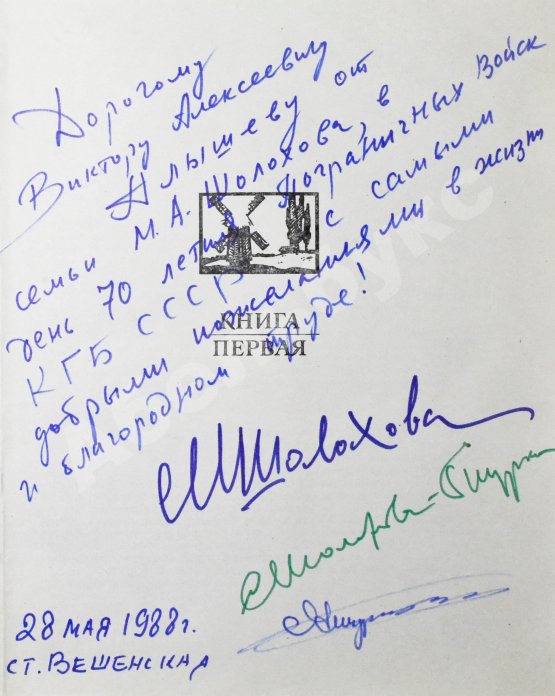 Дорогому
Виктору Алексеевичу
Алышеву от
семьи М.А. Шолохова, в
день 70 летия Пограничных войск
КГБ СССР с самыми
добрыми пожеланиями в жизни
и благородном труде!
КНИГА
ПЕРВАЯ
МШолохова
28 мая 1988г.
ст. Вешенская